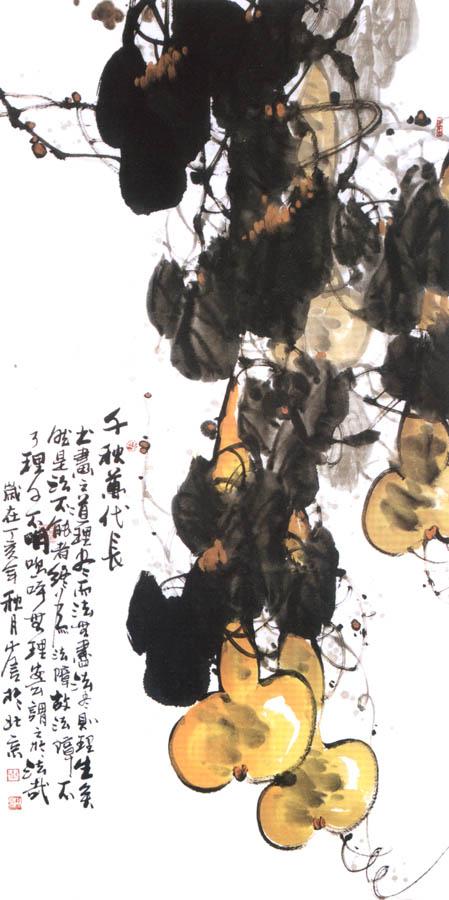 千秋萬代長
書畫之道理尽而法無盡法尽則理生矣
然是法不能者法障故法障不
了理不明嗚呼無理安謂之於法哉
歲在丁亥年秋月於北京